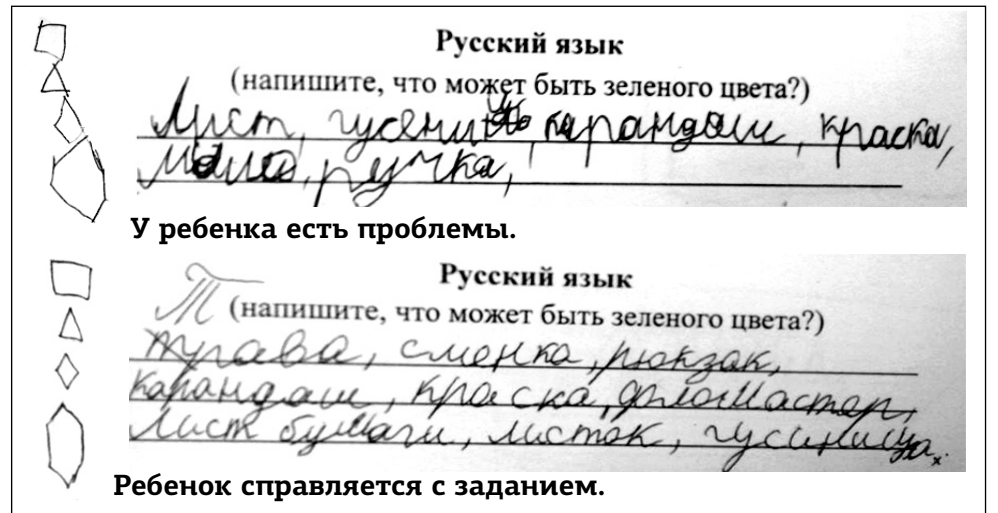 Русский язык
(напишите, что может быть зеленого цвета?)
Лист, гусени карандаш, краска,
ручка,
У ребенка есть проблемы.
Русский язык
Т
(напишите, что может быть зеленого цвета?)
трава, сменка, рюкзак,
карандаш, краска, фломастер,
лист бумаги, листок, гусиница.
Ребенок справляется с заданием.